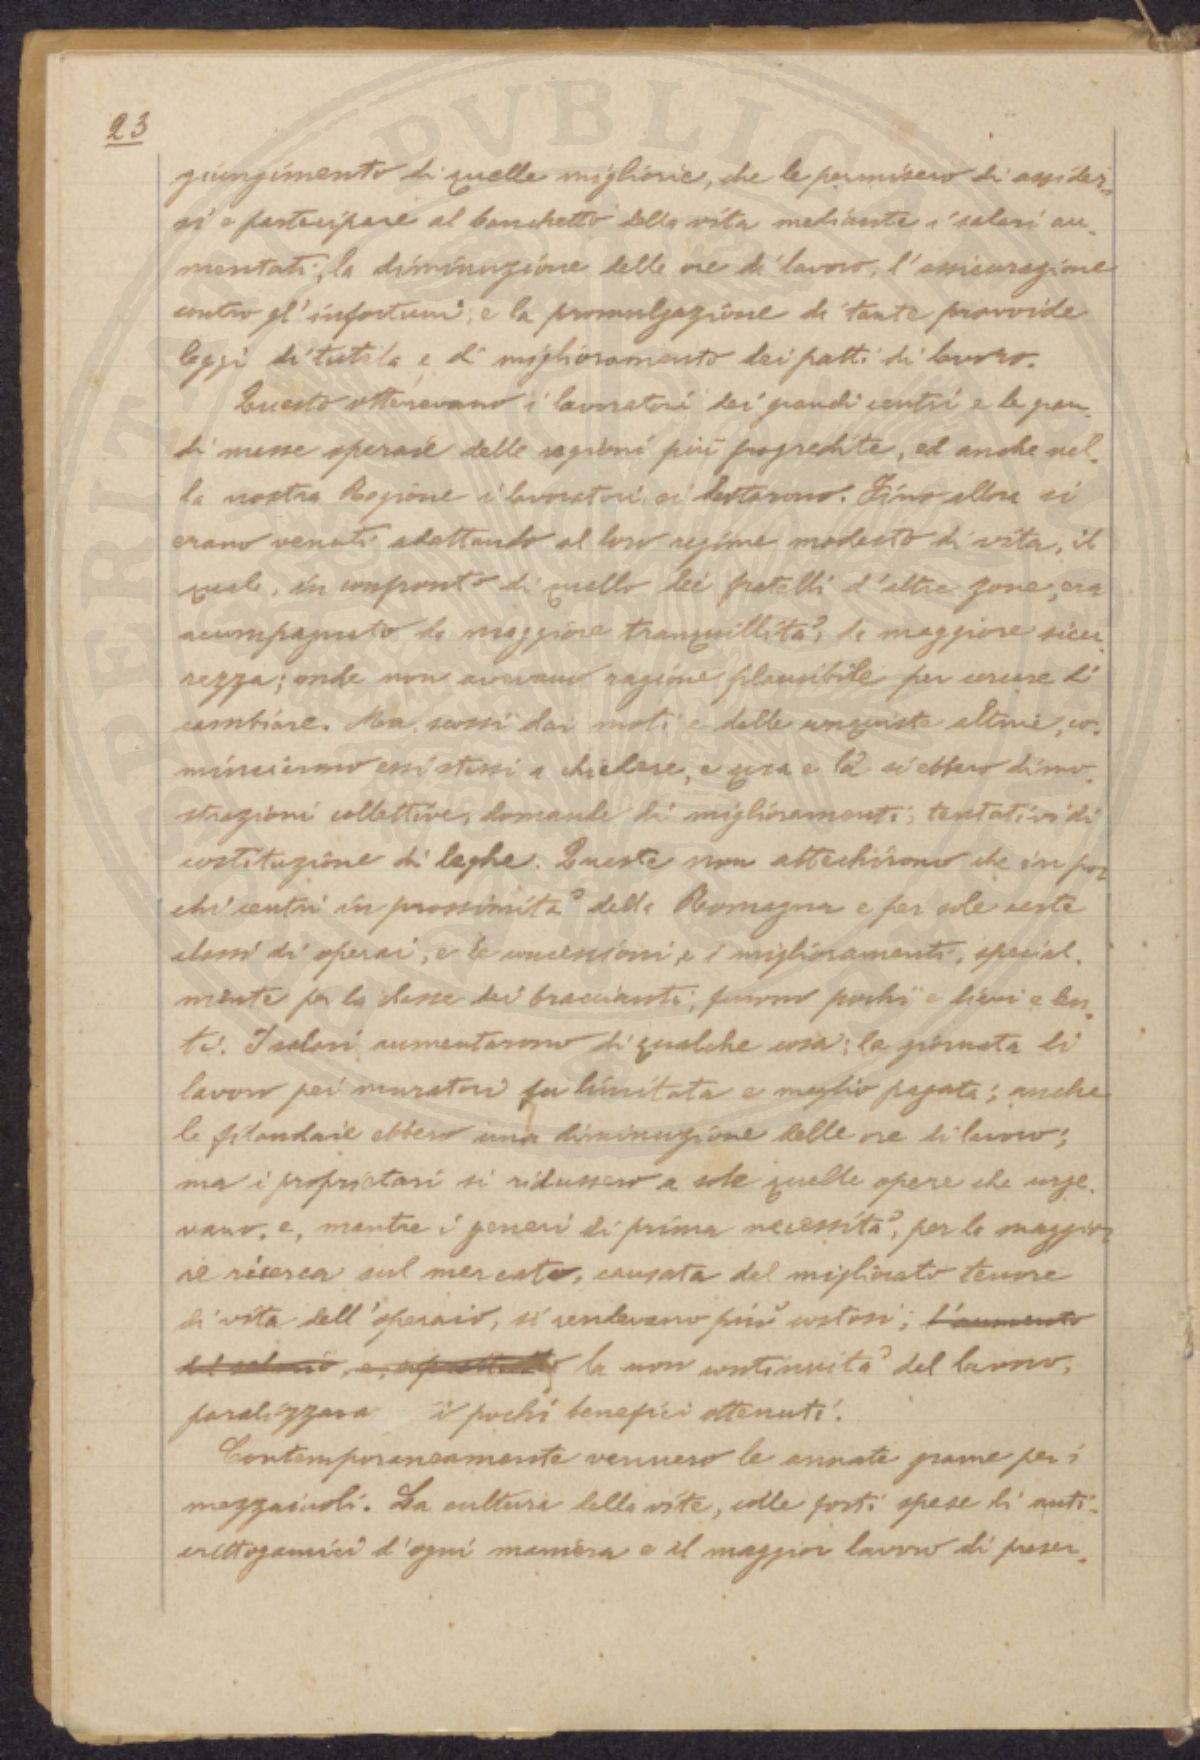 23
giungimento di quelle migliorie, che le permisero di assider-
si e partecipare al banchetto della vita mediante i salari au-
mentati, la diminuzione delle ore di lavoro, l'assicurazione
contro gl'infortuni, e la promulgazione di tante provvide
leggi di tutela e di miglioramento dei patti di lavoro.
Questo ottenevano i lavoratori dei grandi centri e le gran-
di masse operaie delle regioni più progredite, ed anche nel-
la nostra Regione i lavoratori si destarono. Fino allora si
erano venuti adattando al loro regime modesto di vita, il
quale, in confronto di quello dei fratelli d'altre zone, era
accompagnato da maggiore tranquillità, da maggiore sicu-
rezza; onde non avevano ragione plausibile per cercare di
cambiare. Ma, scossi dai moti e dalle conquiste altrui, co-
minciarono essi stessi a chiedere, e qua e là si ebbero dimo-
strazioni collettive, domande di miglioramenti, tentativi di
costituzione di leghe. Queste non attechirono che in po-
chi centri in prossimità della Romagna e per sole certe
classi di operai, e le concessioni e i miglioramenti, special-
mente per la classe dei braccianti, furono pochi e lievi e len-
ti. I salari aumentarono di qualche cosa; la giornata di
lavoro pei muratori fu limitata e meglio pagata; anche
le filandaie ebbero una diminuzione delle ore di lavoro;
ma i proprietari si ridussero a sole quelle opere che urge-
vano, e, mentre i generi di prima necessità, per la maggio-
re ricerca sul mercato, causata dal migliorato tenore
di vita dell'operaio, si rendevano più costosi; l'aumento
del salario, e, soprattutto la non continuità del lavoro,
paralizzava i pochi benefici ottenuti.
Contemporaneamente vennero le annate grame per i
mezzaiuoli. La cultura della vite, colle forti spese di anti-
crittogamici d'ogni maniera e il maggior lavoro di preser-